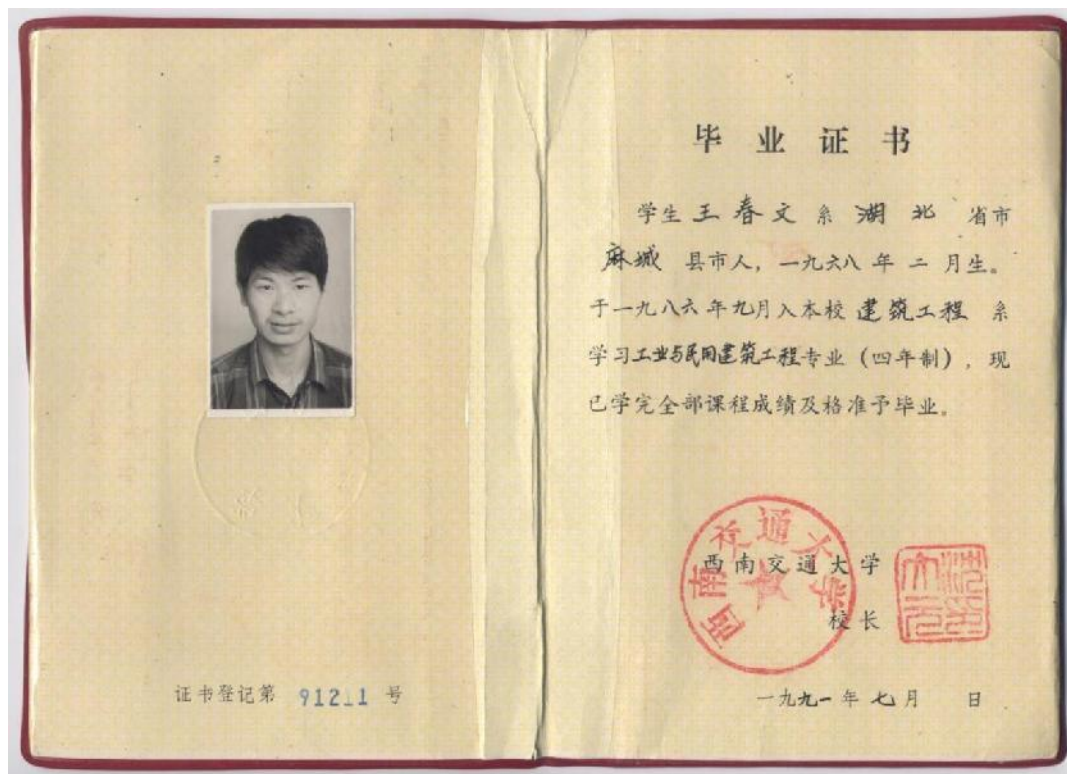 证书登记第 912 1 号
毕业证书
学生王春文系湖北省市
麻城县市人，一九六八年二月生。
于一九八六年九月入本校建筑工程系
学习工业与民用建筑工程专业（四年制），现
已学完全部课程成绩及格准予毕业。
西南交通大学
西南交通大学
校长
一九九一年七月 日